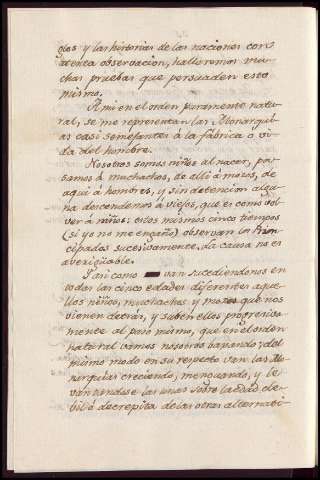 glos y las historias de las naciones con
atenta observacion, hallaremos mu-
chas pruebas que persuaden esto
mismo.
A mi en el orden puramente natu-
ral, se me representan las Monarqui-
as casi semejantes à la fabrica ò vi-
da del hombre.
Nosotros somos niños al nacer, pa-
samos à muchachos, de alli à mozos, de
aqui à hombres, y sin detencion algu-
na descendemos à viejos, que es como vol-
ver à niños: estos mismos cinco tiempos
(si yo no me engaño) observan los Prin-
cipados sucesivamente. La causa no es
averiguable.
Y asi como van sucediendonos en
todas las cinco edades diferentes aque-
llos niños, muchachos y mozos que nos
vienen detras, y suben ellos progresiva-
mente al paso mismo, que en el orden
natural vamos nosotros bajando; del
mismo modo en su respecto van las Mo-
narquias creciendo, menguando, y le-
vantandose las unas sobre la edad de-
bil ò decrepita de las otras alternati-